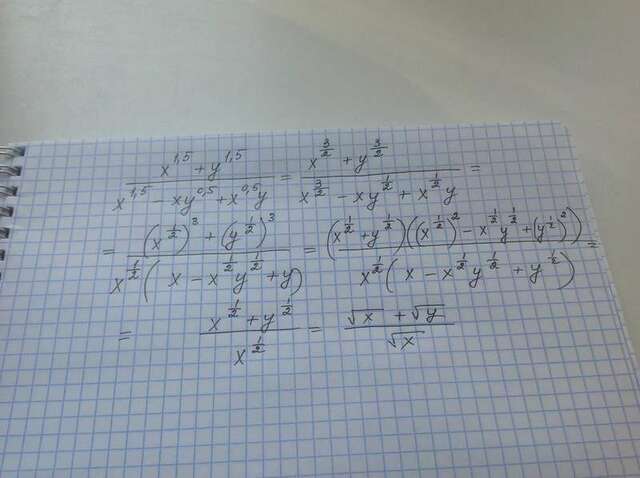 (x^1,5 + y^1,5)/(x^1,5 − xy^0,5 + x^0,5y) = (x^(3/2) + y^(3/2))/(x^(3/2) − xy^(1/2) + x^(1/2)y) =
= ((x^(1/2))^3 + (y^(1/2))^3)/(x^(1/2)(x − x^(1/2)y^(1/2) + y)) = ((x^(1/2) + y^(1/2))((x^(1/2))^2 − x^(1/2)y^(1/2) + (y^(1/2))^2))/(x^(1/2)(x − x^(1/2)y^(1/2) + y^(1/2))) =
= (x^(1/2) + y^(1/2))/x^(1/2) = (√x + √y)/√x